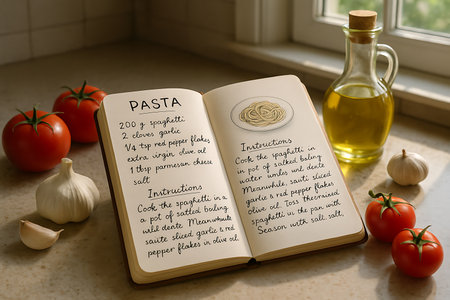 PASTA
200 g spaghetti
2 cloves garlic
1/4 tsp red pepper flakes
extra virgin olive oil
1 tbsp parmesan cheese
salt
Instructions
Cook the spaghetti in a
pot of salted boiling
until dente. Meanwhile
saute sliced garlic & red
pepper flakes in olive oil.
Instructions
Cook the spaghetti in
in pot of salted boling
water and dente.
Meanwhile, saute sliced
garlic & red pepper flakes
olive oil. Toss the
spaghetti in the pan with
Season with salt, salt.